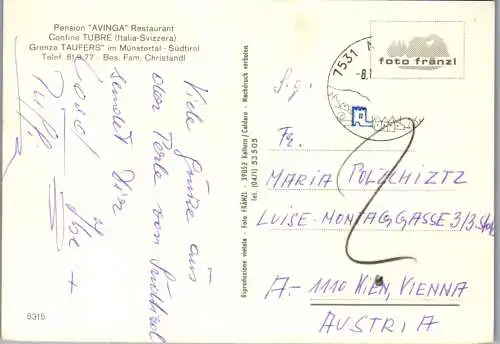 Pension "AVINGA" Restaurant
Confine TUBRE (Italia-Svizzera)
Grenze TAUFERS im Münstertal - Südtirol
Telef. 81977 - Bes. Fam. Christandl
Viele Grüße aus
der Perle von Südtirol
sendet Dir
+
5315
Riproduzione vietata - Foto FRÄNZL - 39052 Kaltern / Caldaro - Nachdruck verboten
Tel. (0471) 53505
7531
foto fränzl
S.g.
Fr.
MARIA POLZCHIZTZ
LUISE-MONTAGGASSE 3/3
A-1110 WIEN, VIENNA
AUSTRIA